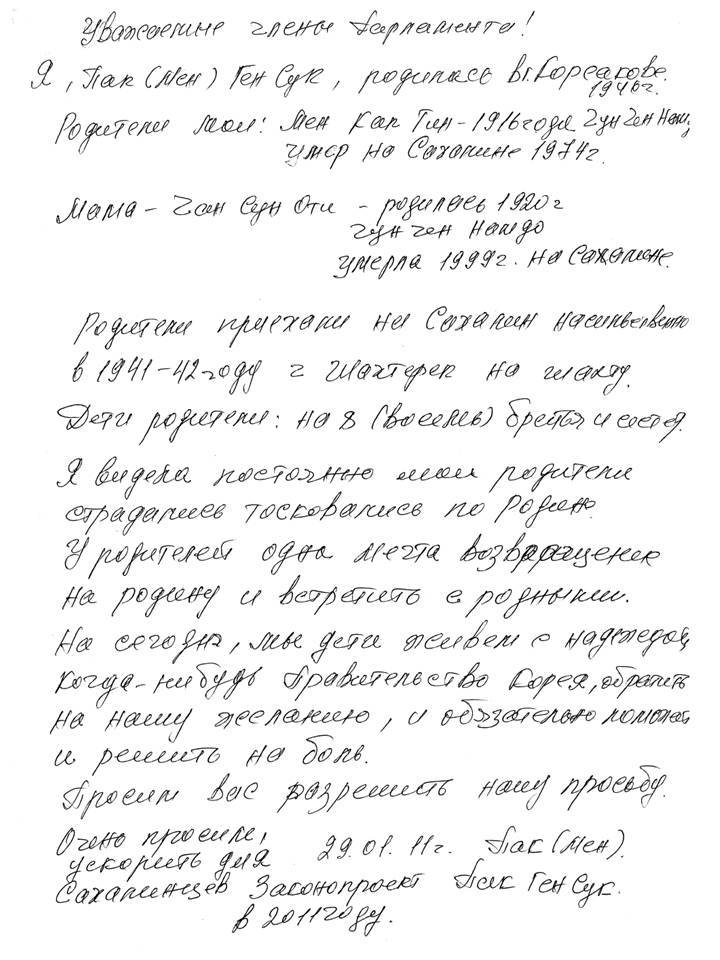 Уважаемые члены Парламента!
Я, Пак (Мен) Ген Сук, родилась в г. Корсакове.
1946г.
Родители мои: Мен Кап Тин - 1916 года Чун Чен Нам,
умер на Сахалине 1974г.
Мама - Чан Сун Оти - родилась 1920 г
Чун чен намдо
умерла 1999г. на Сахалине.
Родители приехали на Сахалин насильственно
в 1941-42 году г Шахтерск на шахту.
Дети родители: на 8 (восемь) братья и сестер.
Я видела постоянно мои родители
страдались тосковались по Родине.
У родителей одна мечта возвращение
на родину и встретить с родными.
На сегодня, мы дети живем с надеждой,
когда-нибудь Правительство Корея, обратить
на нашу желанию, и обязательно поможет
и решить на боль.
Просим вас разрешить нашу просьбу.
Очень просим,
ускорить для 29.01.11г. Пак (Мен).
Сахалинцев Законопроект Пак Ген Сук.
в 2011 году.